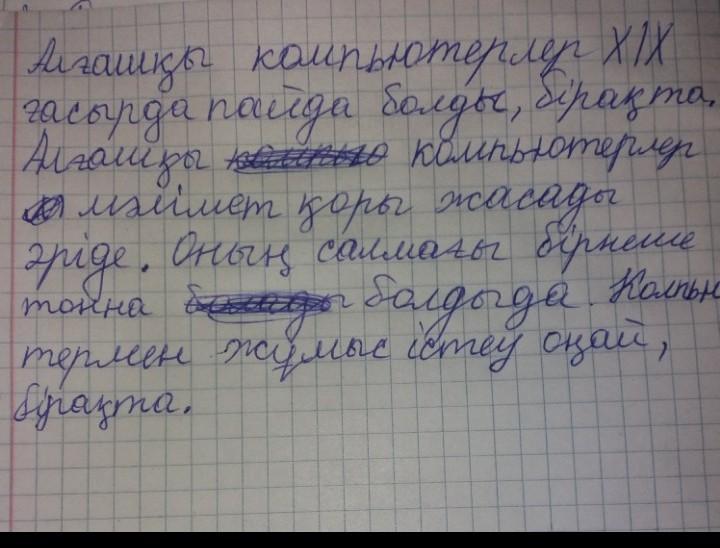 Алғашқы компьютерлер XIX
ғасырда пайда болды, бірақта.
Алғашқы компьютерлер
мәлімет қоры жасады
әріде. Оның салмағы бірнеше
тонна болдыда. Компью
термен жұмыс істеу оңай,
бірақта.